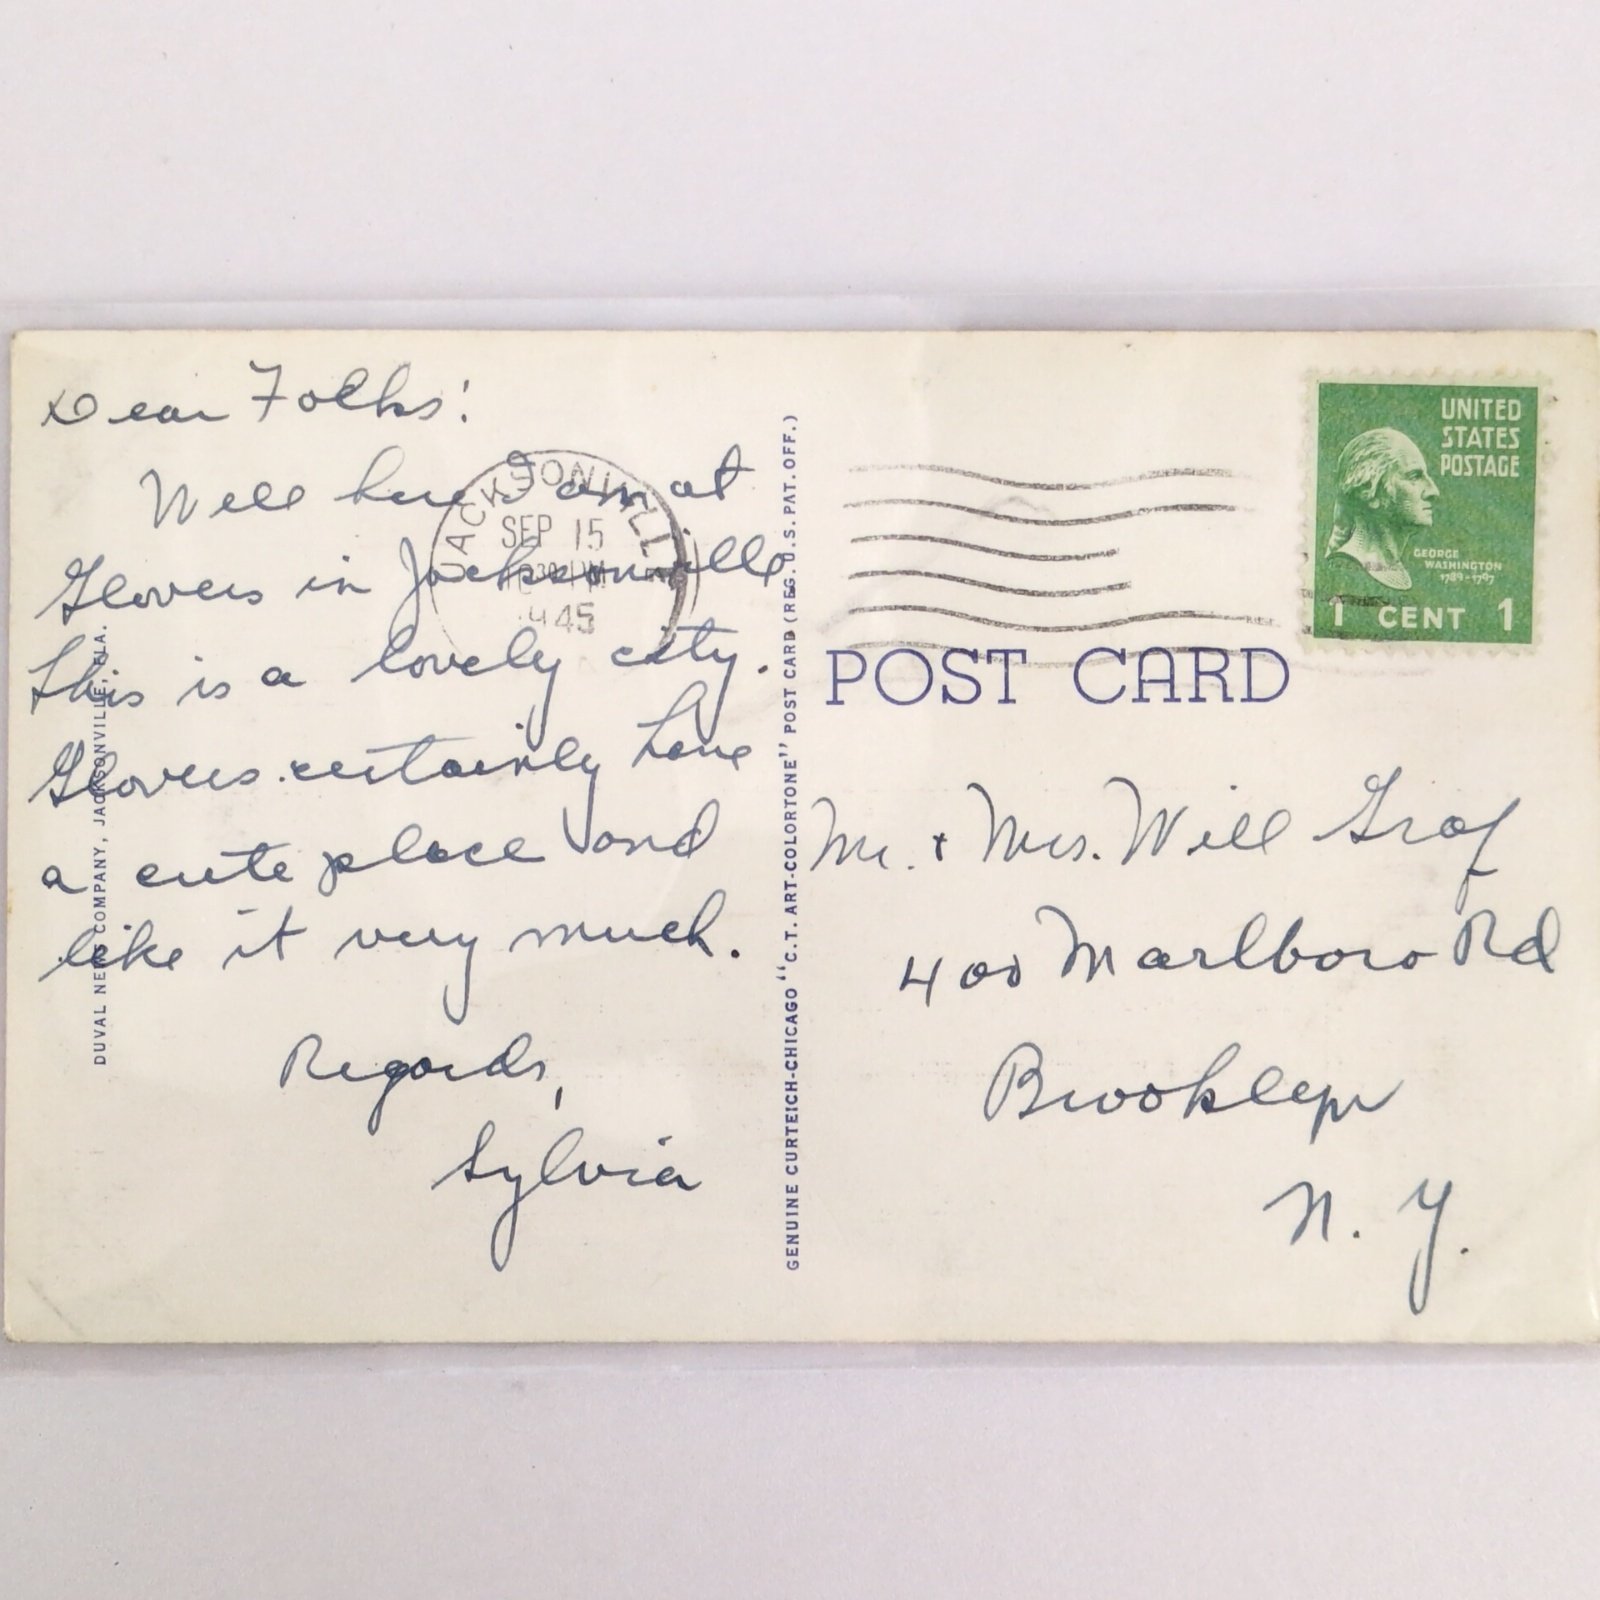 Dear Folks!
Well here I am at
Glovers in Jacksonville
This is a lovely city.
Glovers certainly have
a cute place and
like it very much.
Regards,
Sylvia
JACKSONVILLE
SEP 15
1945
DUVAL NEWS COMPANY, JACKSONVILLE, FLA.
GENUINE CURTEICH-CHICAGO "C.T. ART-COLORTONE" POST CARD (REG. U.S. PAT. OFF.)
UNITED
STATES
POSTAGE
GEORGE
WASHINGTON
1789-1797
1 CENT 1
POST CARD
Mr. + Mrs. Will Graf
400 Marlboro Rd
Brooklyn
N. Y.